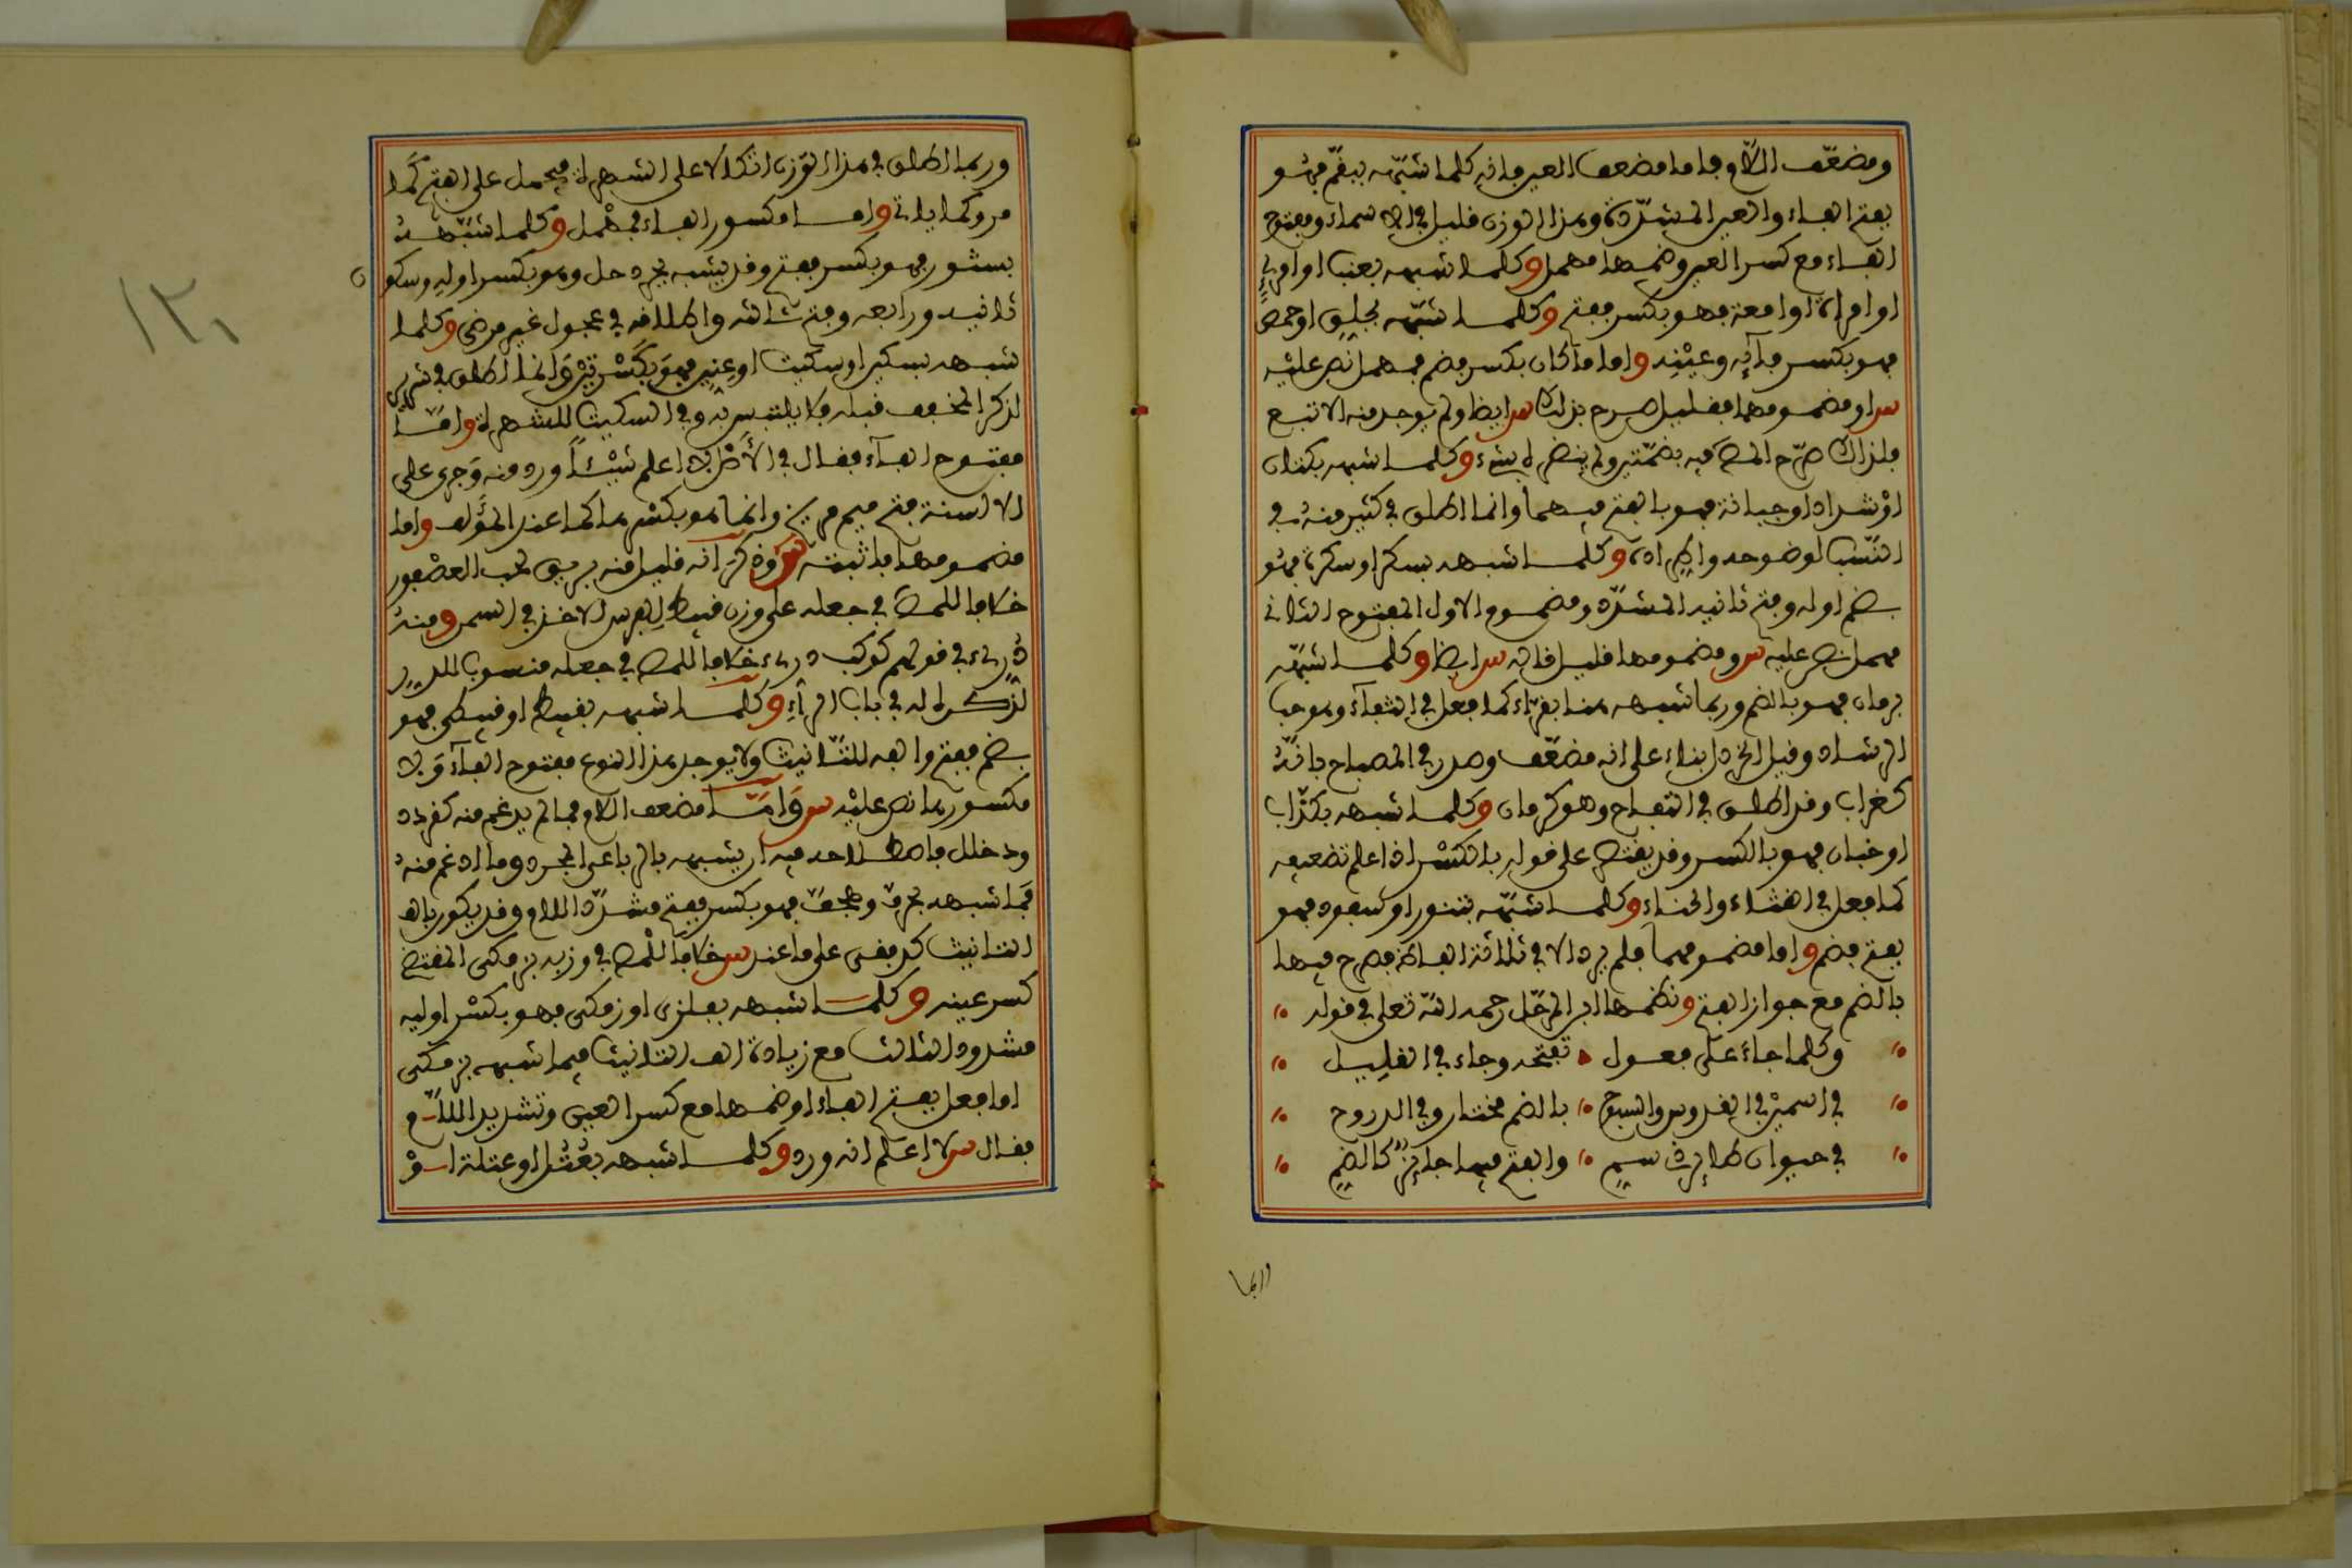 ومضعّف اللام فاما مضعف العين فانه كلما شبّهه ببقّم فهو
بفتح الفاء والعين المشدّدة وهذا الوزن قليل في الاسماء ومفتوح
الفاء مع كسر العين وضمها مهمل وكلما شبهه بعنب او
او امراة او امعة فهو بكسر ففتح وكلما شبّهه بجلق او حمص
فهو بكسر فائه وعينه واما ما كان بكسر فضم فمهمل نص عليه
س او مضمومهما فقليل صرح بذلك س ايضا ولم يوجد منه الا تبع
فلذلك صرّح المص فيه بضمّتين ولم ينضم له شيء وكلما شبهه بكتان
او شداد او جبانة فهو بالفتح فيهما وانما اطلق في كثير منه في
النسب لوضوحه واطراده وكلما شبهه بسكر او سكرة فهو
بضم اوله وفتح ثانيه المشدّد ومضموم الاول المفتوح الثاني
مهمل نص عليه س ومضمومهما قليل قاله س ايضا وكلما شبّهه
برمان فهو بالضم وربما شبهه هنا بقراء كما فعل في الثفاء وهو حب
الرشاد وقيل الخردل بناء على انه مضعّف وصدر في المصباح بانّه
كغراب وقد اطلق في التفاح وهو كرمان وكلما شبهه بكذّاب
او خبان فهو بالكسر وقد يقتصر على قوله بالكسر اذا علم تضعيفه
كما فعل في القثاء والحناء وكلما شبّهه بتنور او سفود فهو
بفتح فضم واما مضمومهما فلم يرد الا في ثلاثة الفاظ فصرح فيها
بالضم مع جواز الفتح ونظمها ابن المرحّل رحمه الله تعلى في قوله
وكلما جاء على فعول تفتحه وجاء في القليل
في اسمين في القدوس والسبوح بالضم مختار وفي الذروح
في حيوان طائر ذي سم والفتح فيها جائز كالضم
والها
وربما اطلق في هذا الوزن اتكالا على الشهرة فيحمل على الفتح كما
مر وكما ياتي واما مكسور الفاء فمهمل وكلما شبّهه
بسنور فهو بكسر ففتح وقد يشبه بجردحل وهو بكسر اوله وسكون
ثانيه ورابعه وفتح ثالثه واطلاقه في عجول غير مرضي وكلما
شبهه بسكير او سكيت او عنين فهو بكسرتين وانما اطلق في شرير
لذكر المخفف قبله فلا يلتبس به وفي السكيت للشهرة وامّا
مفتوح الفاء فقال في لا اعلم شيئا ورد منه وجرى على
الالسنة فتح ميم مريخ وانما هو بكسرها كما عند المؤلف واما
مضمومها فاثبته س وذكر انه قليل منه مريق لحب العصفر
خلافا للمص في جعله على وزن قبيط لغرس الاخذ في السمن ومنه
دريء في قولهم كوكب دريء خلافا للمص في جعله منسوبا للدر
لذكره له في باب الراء وكلما شبهه بقبيط او قبيطى فهو
بضم ففتح والفه للتانيث ولا يوجد هذا النوع مفتوح الفاء ولا
مكسورها نص عليه س وامّا مضعف اللام فما لم يدغم منه كقردد
ودخلل فاصطلاحه فيه ان يشبهه بالرباعي المجرد وما ادغم منه
فما شبهه بخرق وهجف فهو بكسر ففتح مشدّد اللام وقد يكون بالف
التانيث كدفقى على ما عند س خلافا للمص في وزنه بزمكى المقتضي
كسر عينه وكلما شبهه بفلزى او زمكى فهو بكسر اوليه
مشدود الثالث مع زيادة الف التانيث فيما شبهه بزمكى
اما فعل بفتح الفاء او ضمها مع كسر العين وتشديد اللام
فقال س لا اعلم انه ورد وكلما شبهه بعُتُل او عتلة او
١٢١